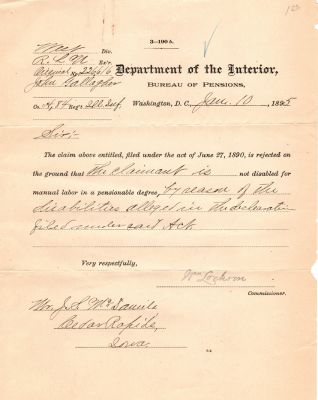 3-190 A.
West Div.
Ex'r.
Original No. 226616
John Gallagher
Department of the Interior,
BUREAU OF PENSIONS,
Co. Reg't Ill. Inf. Washington, D.C., Jan. 10, 1895
Sir:-
The claim above entitled, filed under the act of June 27, 1890, is rejected on
the ground that the claimant is not disabled for
manual labor in a pensionable degree, by reason of the
disabilities alleged in the declaration
filed under said Act
Very respectfully,
Wm Lochren
Commissioner.
Mr. J. S. McDaniels
Cedar Rapids,
Iowa.